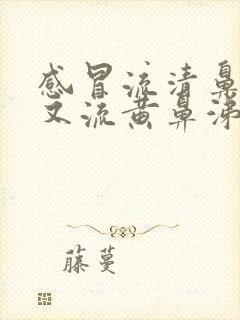 感冒流清鼻
又流黄鼻涕
藤蔓